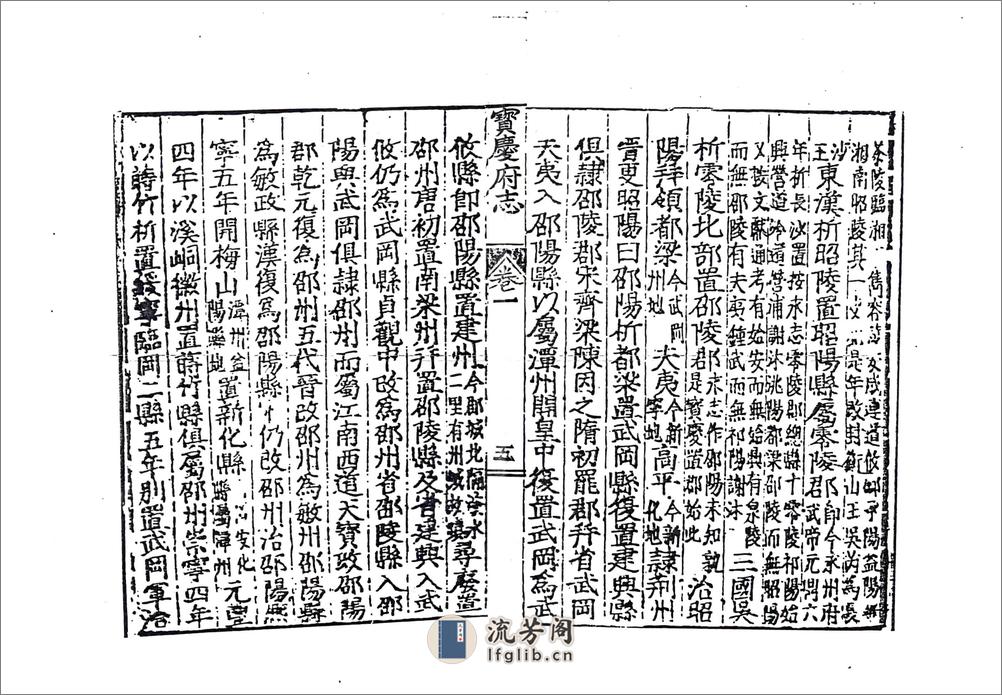 茶陵臨湘 容陵 連道攸 陽益陽
湘南昭陵其一 是年改封衡山王吳芮為長
沙王東漢析昭陵置昭陽縣屬零陵 即今永州府 武帝元鼎六
年析長沙置按永志零陵郡總縣十零陵祁陽始
興營道泠道營浦謝沐洮陽都梁邵陵而無昭陽
又按文獻通考有始安而無始興有泉陵
而無邵陵有夫夷鍾武而無祁陽謝沐三國吳
析零陵北部置邵陵郡永志作邵陽未知孰是寶慶置郡始此治昭
陽拜領都梁今武岡州地夫夷今新寧地高平今新化地隸荆州
晋更昭陽曰邵陽析都梁置武岡縣復置建興縣
俱隸邵陵郡宋齊梁陳因之隋初罷郡并省武岡
夫夷入邵陽縣以屬潭州開皇中復置武岡為武
寶慶府志 卷一 五
攸縣即邵陽縣置建州今郡城北隔 水二里有州城故 尋廢置
邵州唐初置南梁州并置邵陵縣及省建興入武
攸仍為武岡縣貞觀中改為邵州省邵陵縣入邵
陽與武岡俱隸邵州而屬江南西道天寶改邵陽
郡乾元復為邵州五代晋改邵州為敏州邵陽縣
為敏政縣漢復為邵陽縣 仍改邵州治邵陽熙
寧五年開梅山潭州益陽 地置新化縣 安化縣屬潭州元豐
四年以溪峒徽州置蒔竹縣俱屬邵州崇寧四年
以蒔竹析置綏寧臨岡二縣五年別置武岡軍治
流芳阁
lfglib.cn